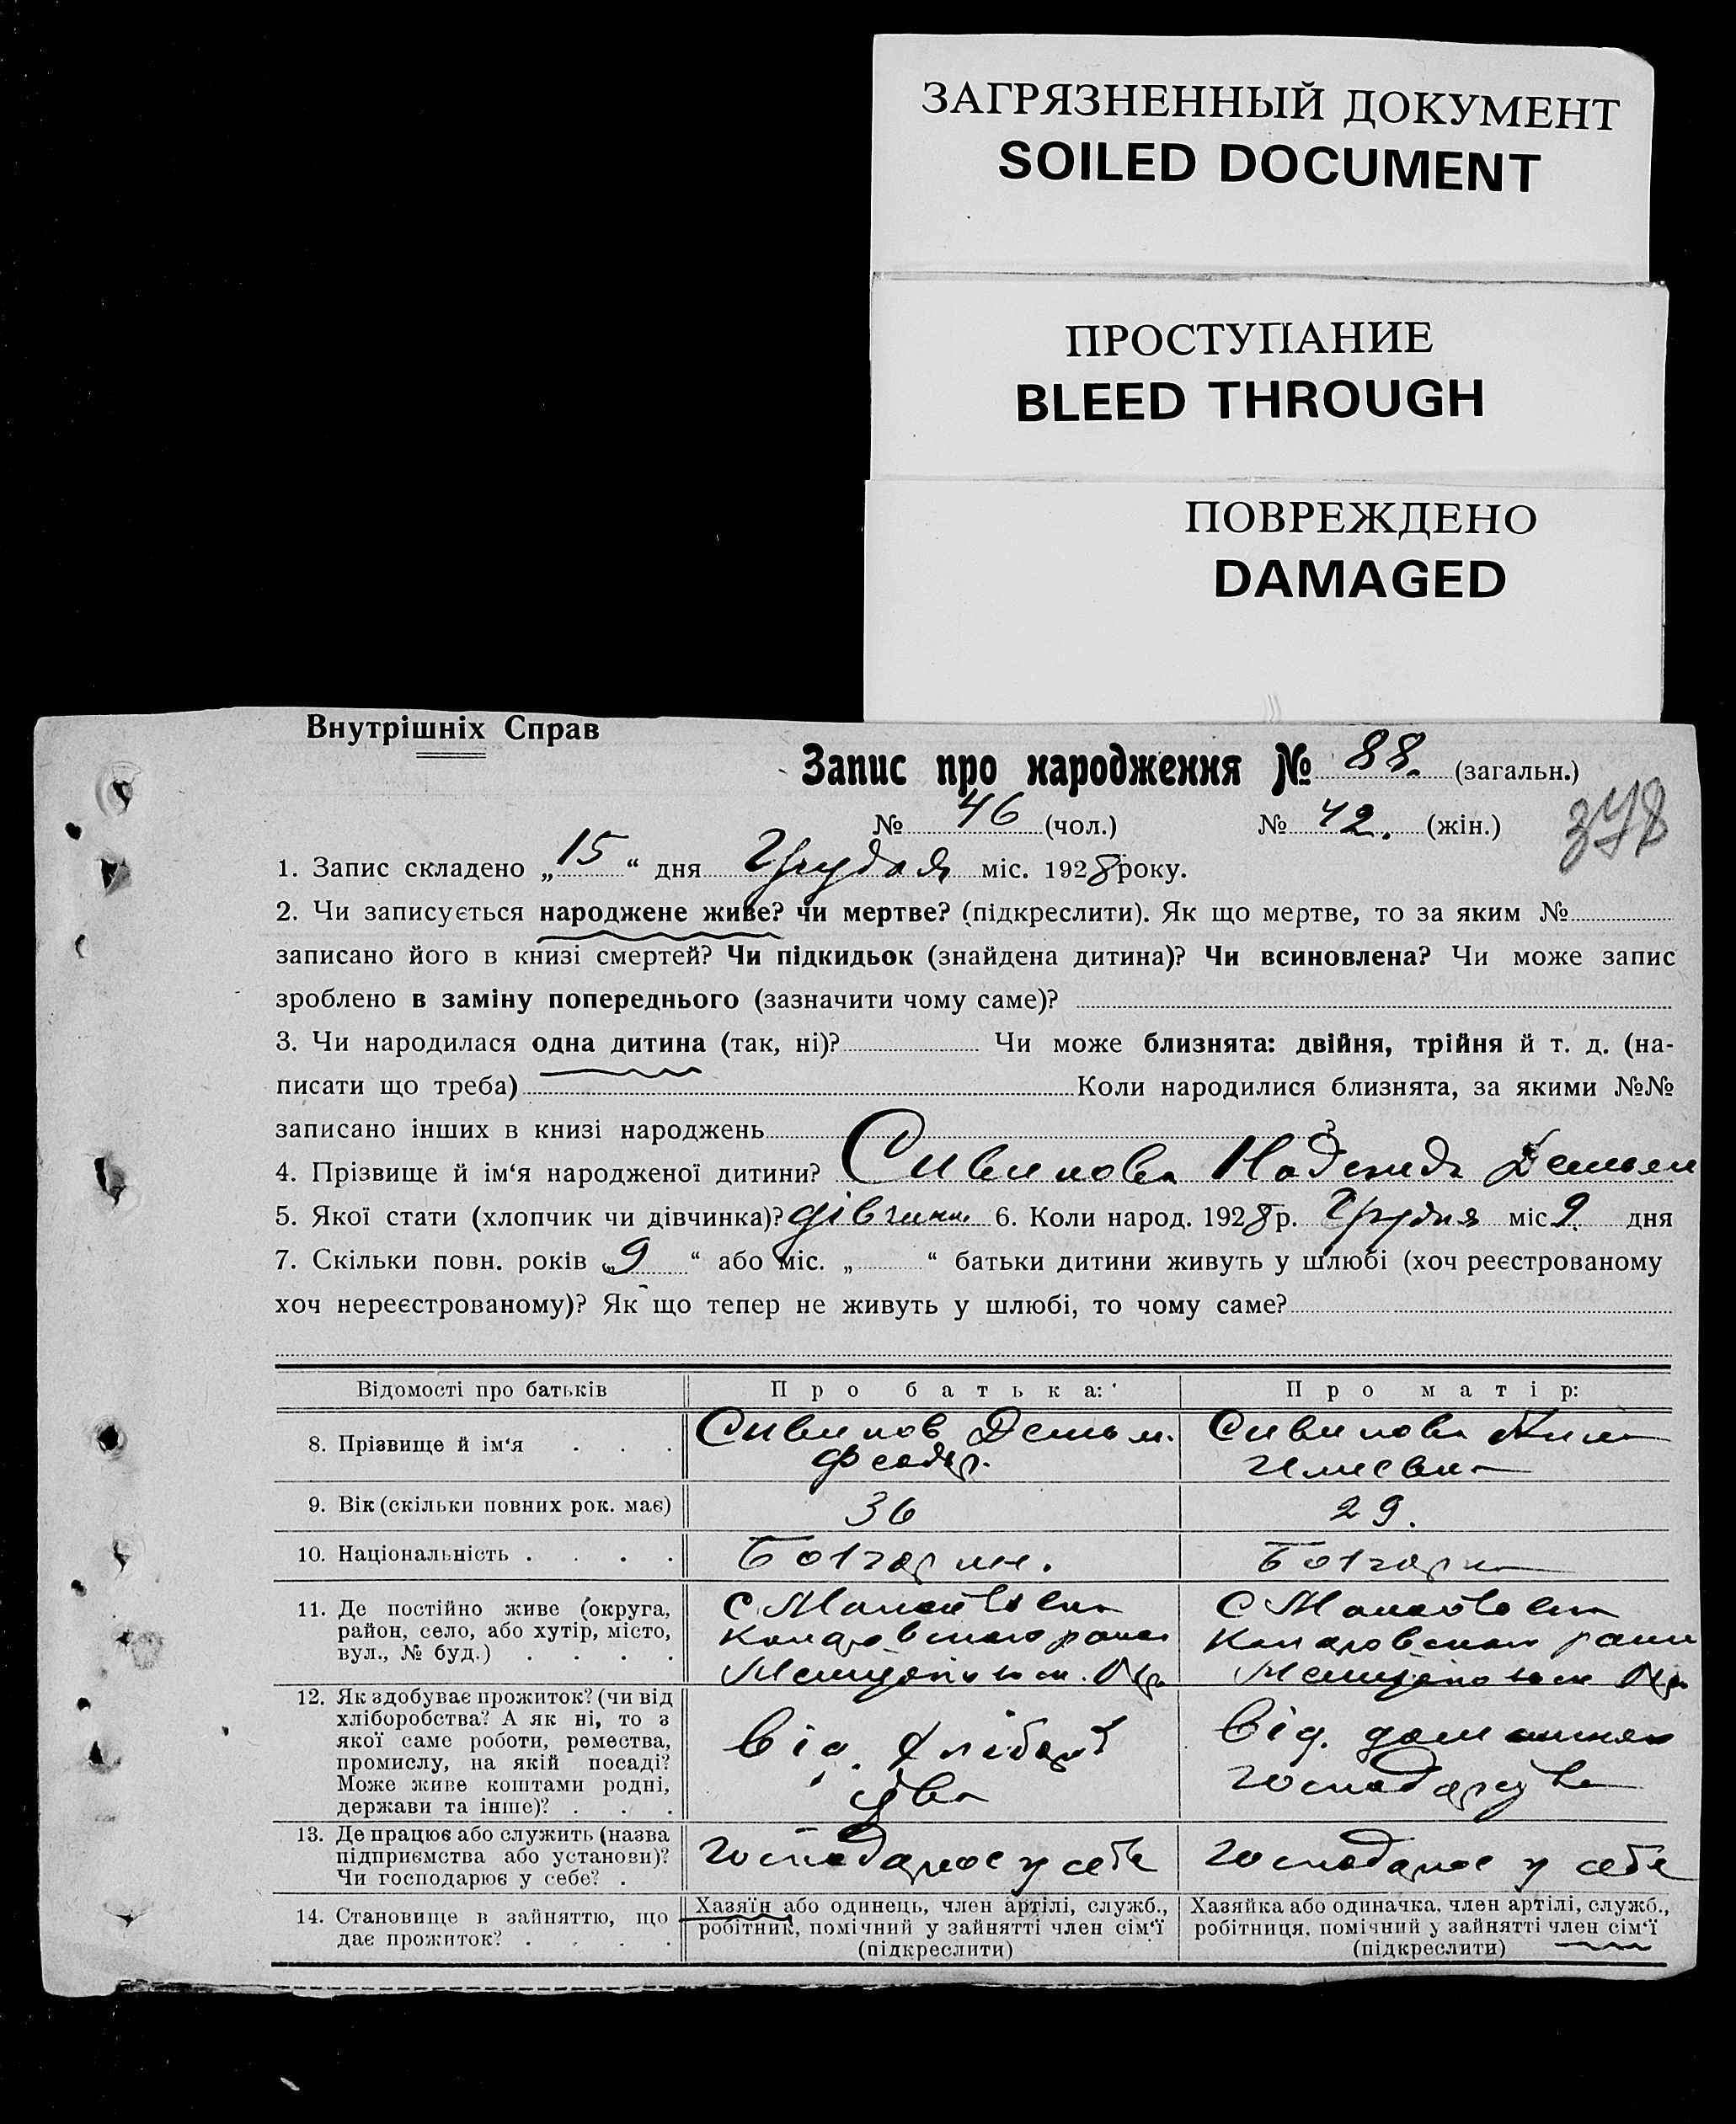 ЗАГРЯЗНЕННЫЙ ДОКУМЕНТ
SOILED DOCUMENT
ПРОСТУПАНИЕ
BLEED THROUGH
ПОВРЕЖДЕНО
DAMAGED
Внутрішніх Справ
Запис про народження № 88. (загальн.)
№ 46 (чол.) № 42. (жін.)
378
1. Запис складено „15“ дня Грудня міс. 1928 року.
2. Чи записується народжене живе? чи мертве? (підкреслити). Як що мертве, то за яким №
записано його в книзі смертей? Чи підкидьок (знайдена дитина)? Чи всиновлена? Чи може запис
зроблено в заміну попереднього (зазначити чому саме)?
3. Чи народилася одна дитина (так, ні)? Чи може близнята: двійня, трійня й т. д. (на-
писати що треба) Коли народилися близнята, за якими №№
записано інших в книзі народжень ?
4. Прізвище й ім‘я народженої дитини? Сивинова Надежда
5. Якої стати (хлопчик чи дівчинка)? дівчинка 6. Коли народ. 1928 р. Грудня міс. 9 дня
7. Скільки повн. років „9“ або міс. „ “ батьки дитини живуть у шлюбі (хоч реєстрованому
хоч нереєстрованому)? Як що тепер не живуть у шлюбі, то чому саме?
Відомості про батьків
Про батька:
Про матір:
8. Прізвище й ім‘я . . .
Сивинов Демьм.
Феодор.
Сивинова
9. Вік (скільки повних рок. має)
36
29.
10. Національність . . . .
Болгарин.
Болгарка
11. Де постійно живе (округа,
район, село, або хутір, місто,
вул., № буд.) . . . .
С.
району
С
району
12. Як здобуває прожиток? (чи від
хліборобства? А як ні, то з
якої саме роботи, ремества,
промислу, на якій посаді?
Може живе коштами родні,
держави та інше)? . . .
від. хлібороб
ства
від. домашнього
господарства
13. Де працює або служить (назва
підприємства або установи)?
Чи господарює у себе? .
Господарює у себе
Господарює у себе
14. Становище в зайняттю, що
дає прожиток? . . . .
Хазяїн або одинець, член артілі, служб.,
робітник, помічний у зайнятті член сім‘ї
(підкреслити)
Хазяйка або одиначка, член артілі, служб.,
робітниця, помічний у зайнятті член сім‘ї
(підкреслити)